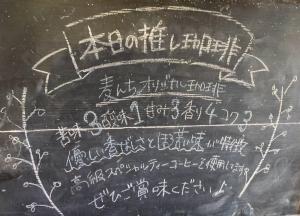 本日の推し珈琲
麦んちオリジナル珈琲
苦味3酸味1甘み3香り4コク3
優しい香ばしさとほろ苦い味が特徴
高級スペシャルティーコーヒーを使用してます。
ぜひご賞味ください♪